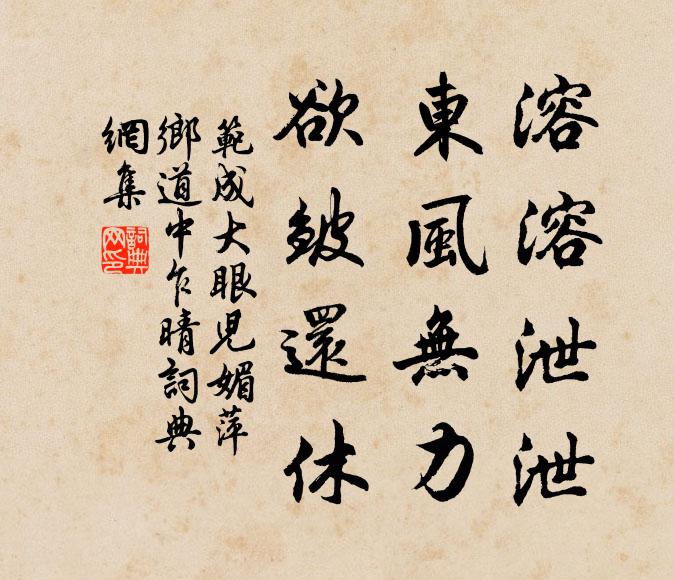 溶溶泄泄
東風無力
欲皴還休
範成大眼兒媚萍
鄉道中乍晴詞典
網集
詞典網印